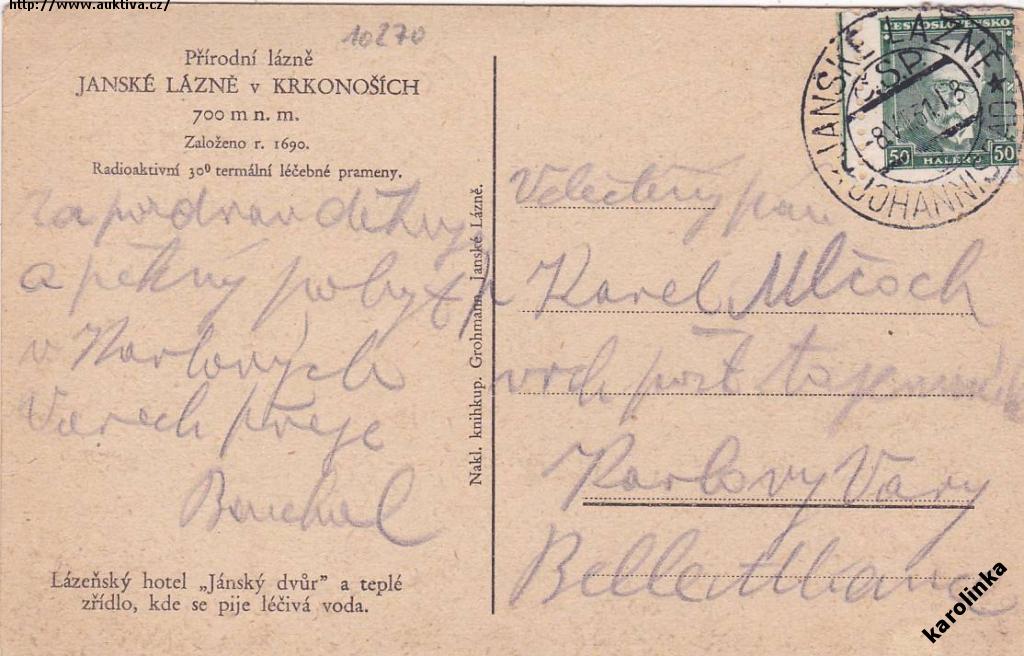 http://www.auktiva.cz/
10270
Přírodní lázně
JANSKÉ LÁZNĚ v KRKONOŠÍCH
700 m n. m.
Založeno r. 1690.
Radioaktivní 30⁰ termální léčebné prameny.
Za pozdrav děkuji
a pěkný pobyt
v Karlových
Varech přeje
Lázeňský hotel „Jánský dvůr" a teplé
zřídlo, kde se pije léčivá voda.
Nakl. knihkup. Grohmann, Janské Lázně.
ČESKOSLOVENSKO
50 HALÉŘŮ 50
JANSKÉ LÁZNĚ
Č.S.P.
JOHANNIS
Velectěný pan
Karel Mlčoch
vrch. pošt. tajemník
Karlovy Vary
Belle
karolinka